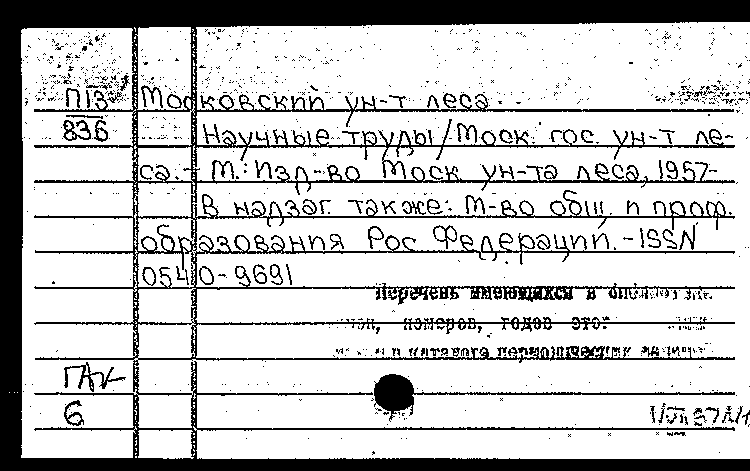 П13 Московский ун-т леса.
836 Научные труды/Моск. гос. ун-т ле-
са. - М.: Изд-во Моск. ун-та леса, 1957-
В надзаг. также: М-во общ. и проф.
образования Рос. Федерации. - ISSN
0540-9691
Перечень имеющихся в
номеров, годов этог
каталога периодических
ГАК
6